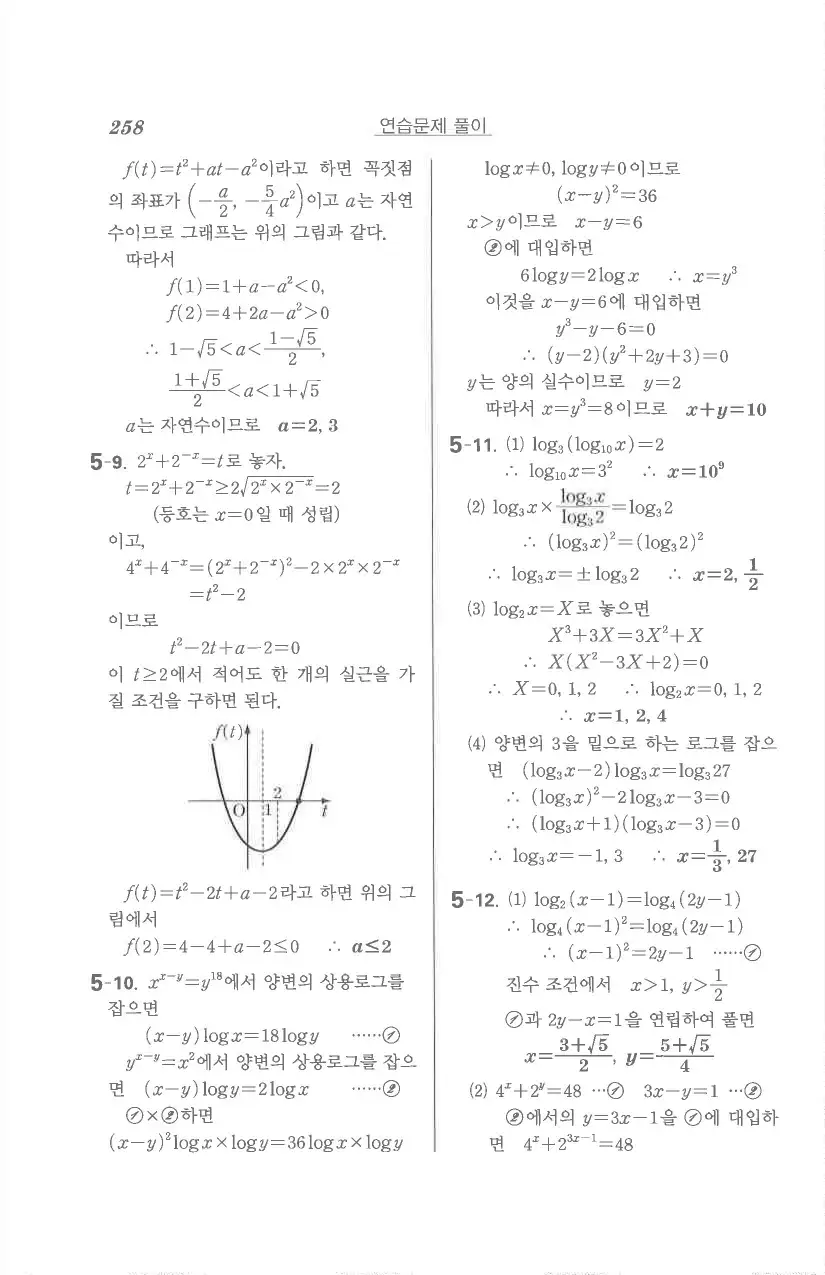 258
연습문제 풀이
f(t)=t²+at−a²이라고 하면 꼭짓점
의 좌표가 (−a/2, −5/4 a²)이고 a는 자연
수이므로 그래프는 위의 그림과 같다.
따라서
f(1)=1+a−a²<0,
f(2)=4+2a−a²>0
∴ 1−√5<a<(1−√5)/2,
(1+√5)/2<a<1+√5
a는 자연수이므로 a=2, 3
5-9. 2ˣ+2⁻ˣ=t로 놓자.
t=2ˣ+2⁻ˣ≥2√(2ˣ×2⁻ˣ)=2
(등호는 x=0일 때 성립)
이고,
4ˣ+4⁻ˣ=(2ˣ+2⁻ˣ)²−2×2ˣ×2⁻ˣ
=t²−2
이므로
t²−2t+a−2=0
이 t≥2에서 적어도 한 개의 실근을 가
질 조건을 구하면 된다.
f(t)
2
O 1 t
f(t)=t²−2t+a−2라고 하면 위의 그
림에서
f(2)=4−4+a−2≤0 ∴ a≤2
5-10. xˣ⁻ʸ=y¹⁸에서 양변의 상용로그를
잡으면
(x−y)logx=18logy ⋯⋯①
yˣ⁻ʸ=x²에서 양변의 상용로그를 잡으
면 (x−y)logy=2logx ⋯⋯②
①×②하면
(x−y)²logx×logy=36logx×logy
logx≠0, logy≠0이므로
(x−y)²=36
x>y이므로 x−y=6
②에 대입하면
6logy=2logx ∴ x=y³
이것을 x−y=6에 대입하면
y³−y−6=0
∴ (y−2)(y²+2y+3)=0
y는 양의 실수이므로 y=2
따라서 x=y³=8이므로 x+y=10
5-11. (1) log₃(log₁₀x)=2
∴ log₁₀x=3² ∴ x=10⁹
(2) log₃x×(log₃x)/(log₃2)=log₃2
∴ (log₃x)²=(log₃2)²
∴ log₃x=±log₃2 ∴ x=2, 1/2
(3) log₂x=X로 놓으면
X³+3X=3X²+X
∴ X(X²−3X+2)=0
∴ X=0, 1, 2 ∴ log₂x=0, 1, 2
∴ x=1, 2, 4
(4) 양변의 3을 밑으로 하는 로그를 잡으
면 (log₃x−2)log₃x=log₃27
∴ (log₃x)²−2log₃x−3=0
∴ (log₃x+1)(log₃x−3)=0
∴ log₃x=−1, 3 ∴ x=1/3, 27
5-12. (1) log₂(x−1)=log₄(2y−1)
∴ log₄(x−1)²=log₄(2y−1)
∴ (x−1)²=2y−1 ⋯⋯①
진수 조건에서 x>1, y>1/2
①과 2y−x=1을 연립하여 풀면
x=(3+√5)/2, y=(5+√5)/4
(2) 4ˣ+2ʸ=48 ⋯① 3x−y=1 ⋯②
②에서의 y=3x−1을 ①에 대입하
면 4ˣ+2³ˣ⁻¹=48